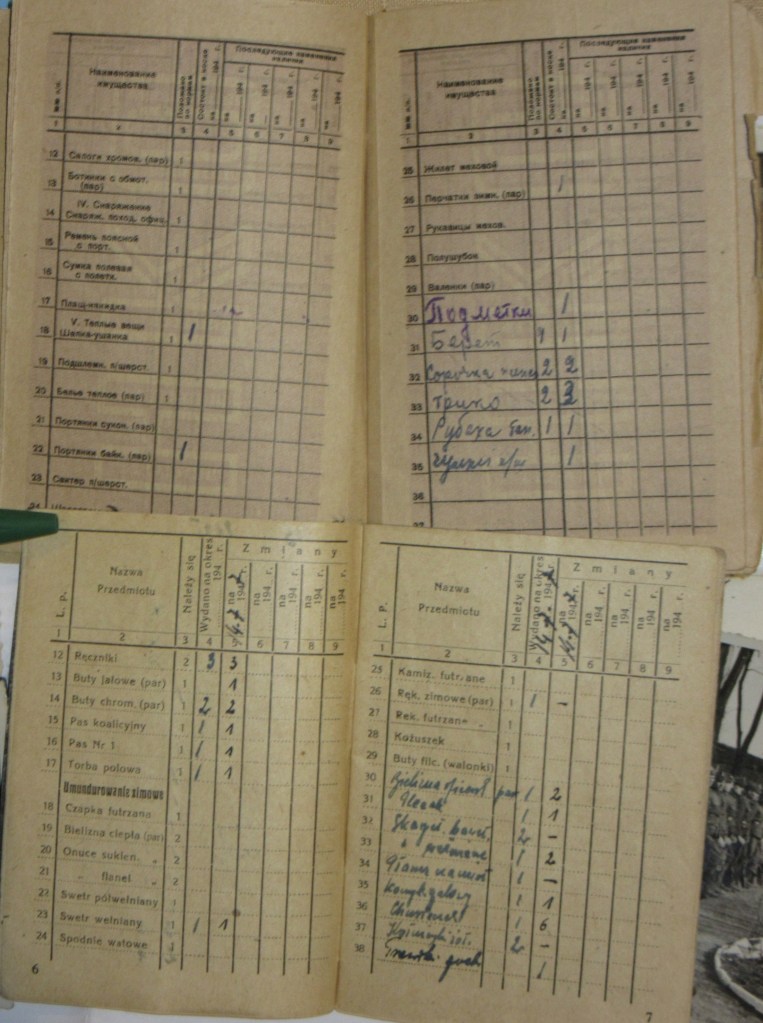 №№ п/п.
Наименование
имущества
Положено
по нормам
Состоит в носке
на 194 г.
Последующие изменения
наличия
на 194 г.
на 194 г.
на 194 г.
на 194 г.
на 194 г.
1 2 3 4 5 6 7 8 9
12 Сапоги хромов. (пар) 1
13 Ботинки с обмот.
(пар) 1
IV. Снаряжение
14 Снаряж. поход. офиц. 1
15 Ремень поясной
с порт. 1
16 Сумка полевая
с полетк. 1
17 Плащ-накидка 1
V. Теплые вещи
18 Шапка-ушанка 1
19 Подшлемн. п/шерст. 1
20 Белье теплое (пар) 1
21 Портянки сукон. (пар)
22 Портянки байк. (пар) 1
23 Свитер п/шерст.
24
№№ п/п.
Наименование
имущества
Положено
по нормам
Состоит в носке
на 194 г.
Последующие изменения
наличия
на 194 г.
на 194 г.
на 194 г.
на 194 г.
на 194 г.
1 2 3 4 5 6 7 8 9
25 Жилет меховой
26 Перчатки зимн. (пар) 1
27 Рукавицы мехов.
28 Полушубок
29 Валенки (пар)
30 Подметки 1
31 Берет 1 1
32 Сорочка 2 2
33 Трико 2 3
34 Рубаха 1 1
35 Чулки 1
36
L. p.
Nazwa
Przedmiotu
Należy się
Wydano na okres
194 г.
Zmiany
na
194 г.
na
194 г.
na
194 г.
na
194 г.
na
194 г.
1 2 3 4 5 6 7 8 9
12 Ręczniki 2 3 3
13 Buty jałowe (par) 1 1
14 Buty chrom. (par) 1 2 2
15 Pas koalicyjny 1 1 1
16 Pas Nr 1 1 1 1
17 Torba polowa 1 1 1
Umundurowanie zimowe
18 Czapka futrzana 1
19 Bielizna ciepła (par) 2
20 Onuce suklen. „ 2
21 „ flanel „ 2
22 Swetr półwełniany 1
23 Swetr wełniany 1 1 1
24 Spodnie watowe
6
L. p.
Nazwa
Przedmiotu
Należy się
Wydano na okres
194 г.
Zmiany
na
194 г.
na
194 г.
na
194 г.
na
194 г.
na
194 г.
1 2 3 4 5 6 7 8 9
25 Kamiz. futrzane 1
26 Ręk. zimowe (par) 1 1 –
27 Ręk. futrzane „ 1
28 Kożuszek 1
29 Buty filc. (walonki) 1
30 Bielizna par 1 2
31 1 1
32 2 –
33 1 2
34 1 –
35 1 1
36 1 6
37 2 –
38 1
7